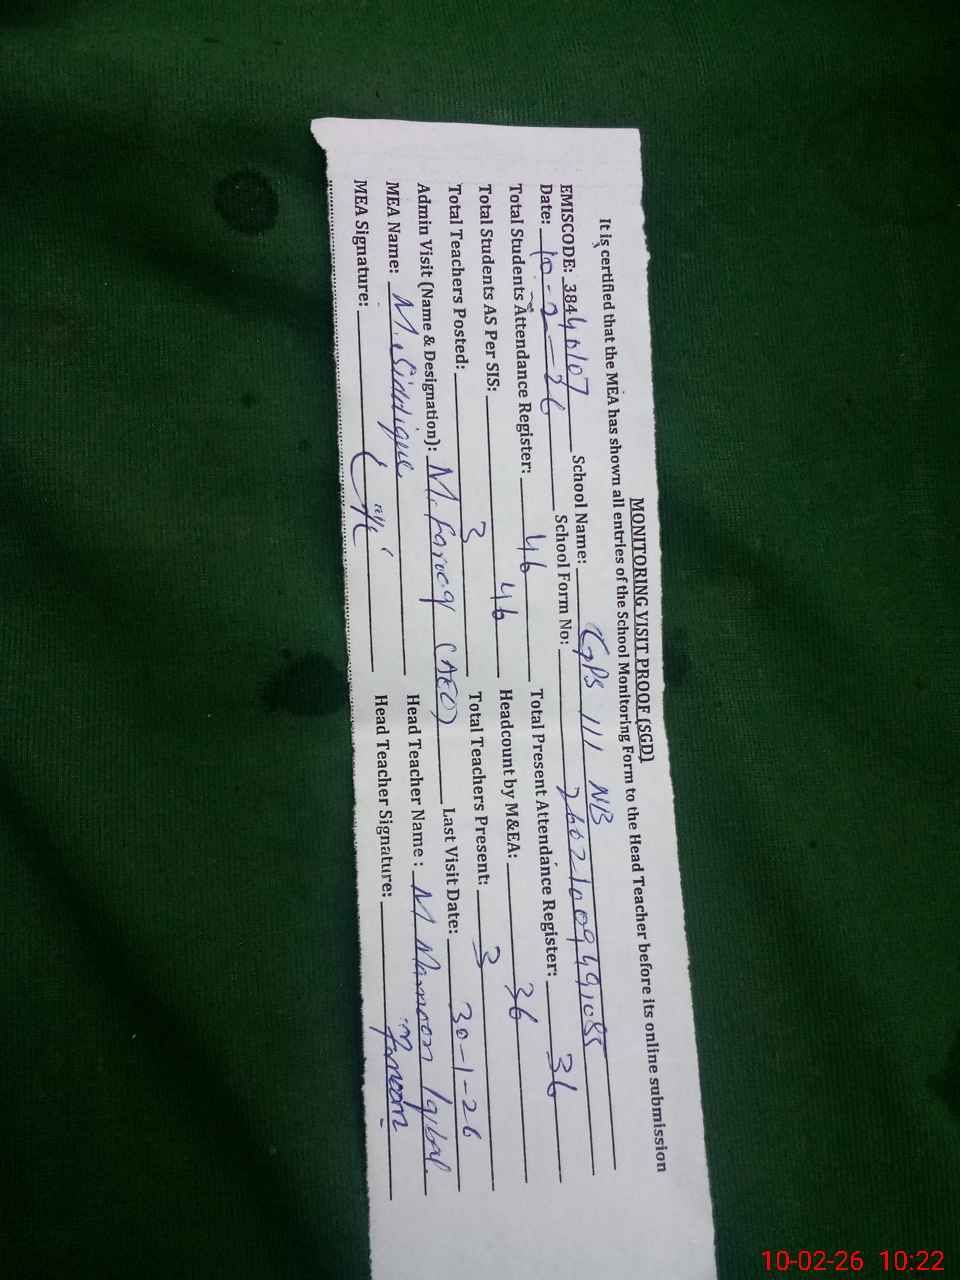 MONITORING VISIT PROOF (SGD)
It is certified that the MEA has shown all entries of the School Monitoring Form to the Head Teacher before its online submission
EMISCODE: 38440107 School Name: GPS 111 NB
Date: 10-2-26 School Form No:
Total Students Attendance Register: 46 Total Present Attendance Register: 36
Total Students AS Per SIS: 46 Headcount by M&EA: 36
Total Teachers Posted: 3 Total Teachers Present: 3
Admin Visit (Name & Designation): M. Farooq (AEO) Last Visit Date: 30-1-26
MEA Name: M. Siddique Head Teacher Name : M Mamoon Iqbal
MEA Signature: Head Teacher Signature: Mamoon
10-02-26 10:22